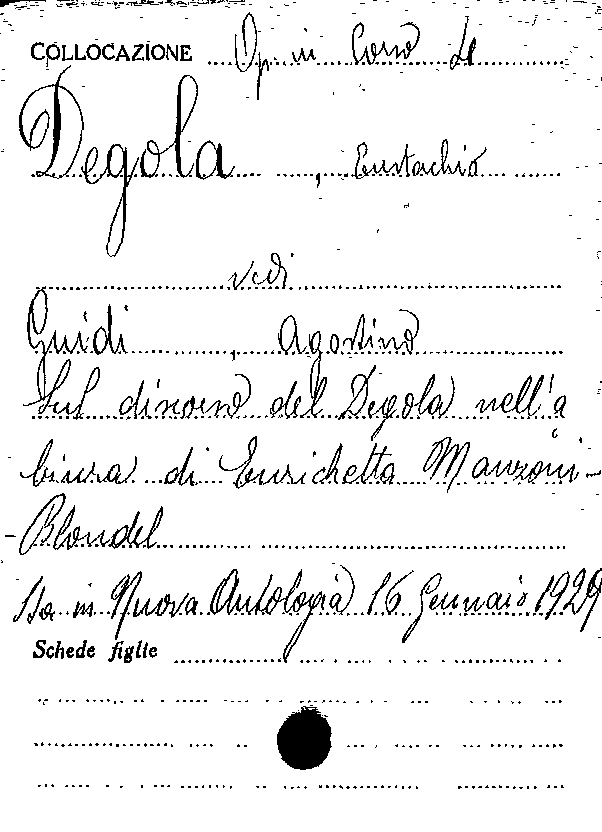 COLLOCAZIONE Op. in Corso 4
Degola, Eustachio
vedi
Guidi, Agostino
Sul discorso del Degola nell'a
biura di Enrichetta Manzoni-
-Blondel
Sta in Nuova Antologia 16 Gennaio 1929
Schede figlie